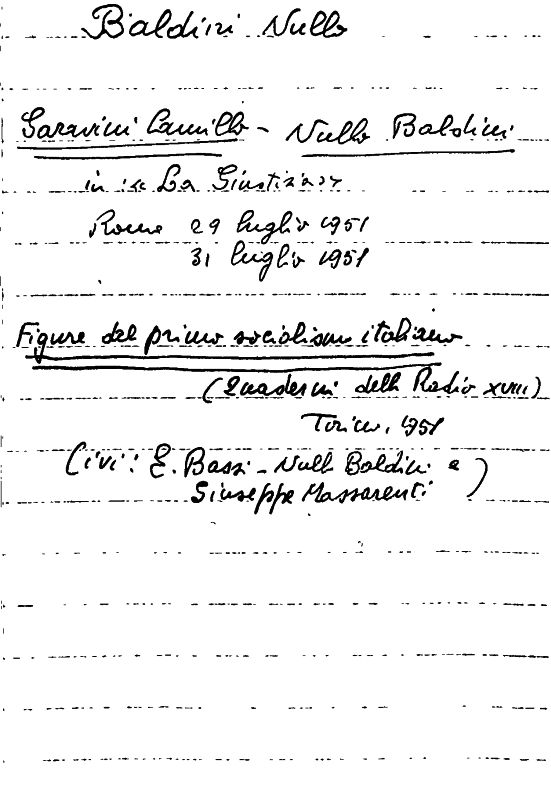 Baldini Nullo
Saravini Camillo - Nullo Baldini
in « La Giustizia»
Roma 29 luglio 1951
31 luglio 1951
Figure del primo socialismo italiano
(Quaderni della Radio XVIII)
Torino, 1951
(ivi: E. Bassi - Nullo Baldini e
Giuseppe Massarenti)